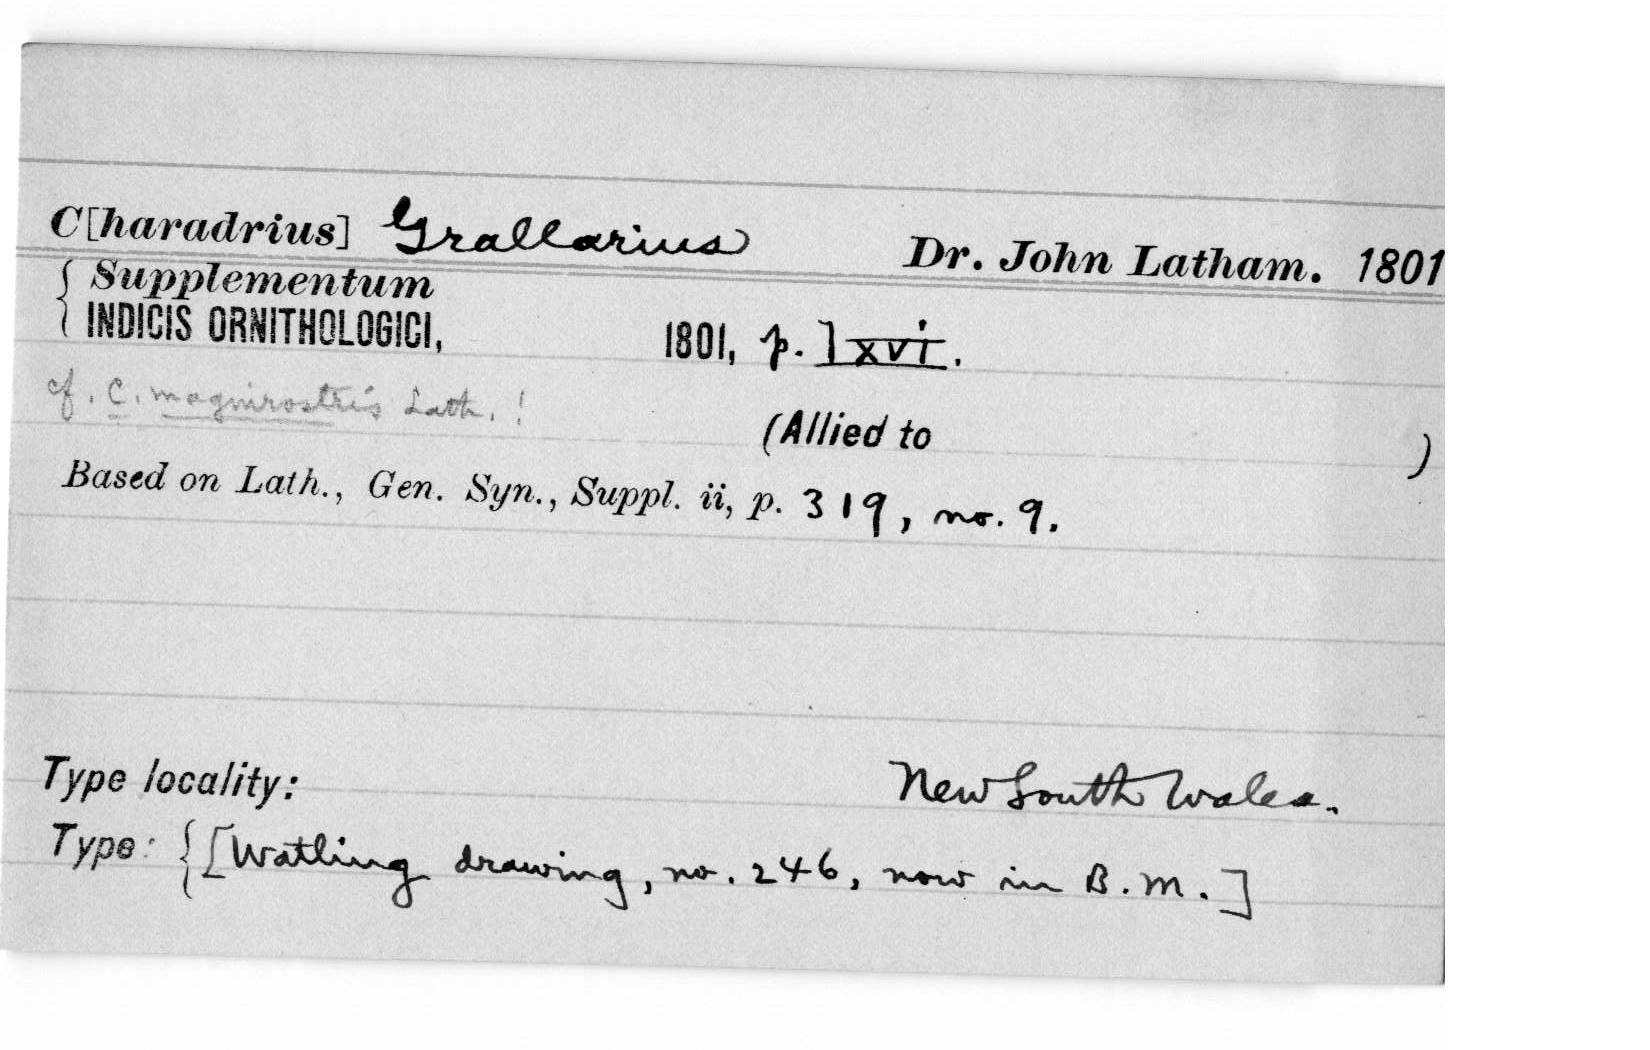 C[haradrius] Grallarius Dr. John Latham. 1801
{ Supplementum
INDICIS ORNITHOLOGICI, 1801, p. lxvi.
cf. C. magnirostris Lath. !
(Allied to )
Based on Lath., Gen. Syn., Suppl. ii, p. 319, no. 9.
Type locality: New South Wales.
Type: {[Watling drawing, no. 246, now in B.M.]